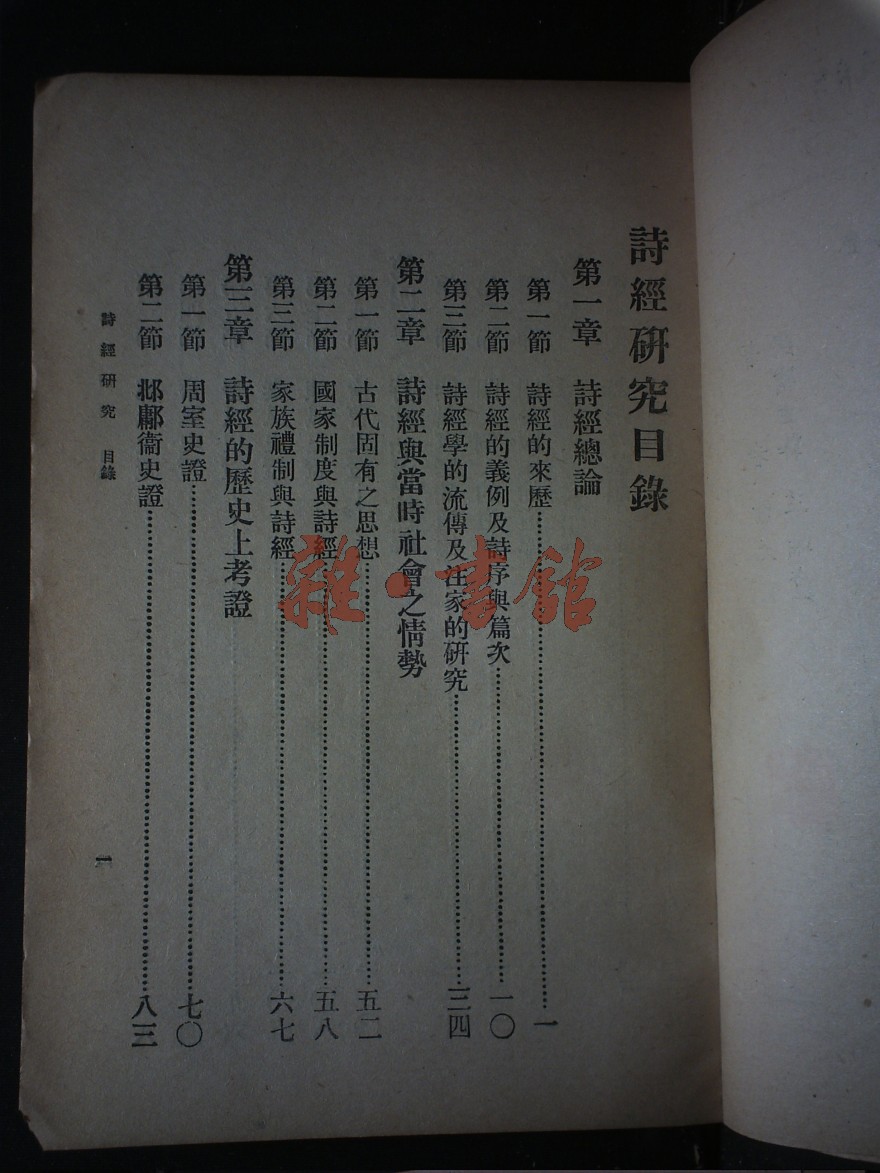 詩經研究目錄
第一章 詩經總論
第一節 詩經的來歷……一
第二節 詩經的義例及詩序與篇次……一〇
第三節 詩經學的流傳及注家的研究……三四
第二章 詩經與當時社會之情勢
第一節 古代固有之思想……五二
第二節 國家制度與詩經……五八
第三節 家族禮制與詩經……六七
第三章 詩經的歷史上考證
第一節 周室史證……七〇
第二節 邶鄘衞史證……八三
詩經研究 目錄
一
雜·書館